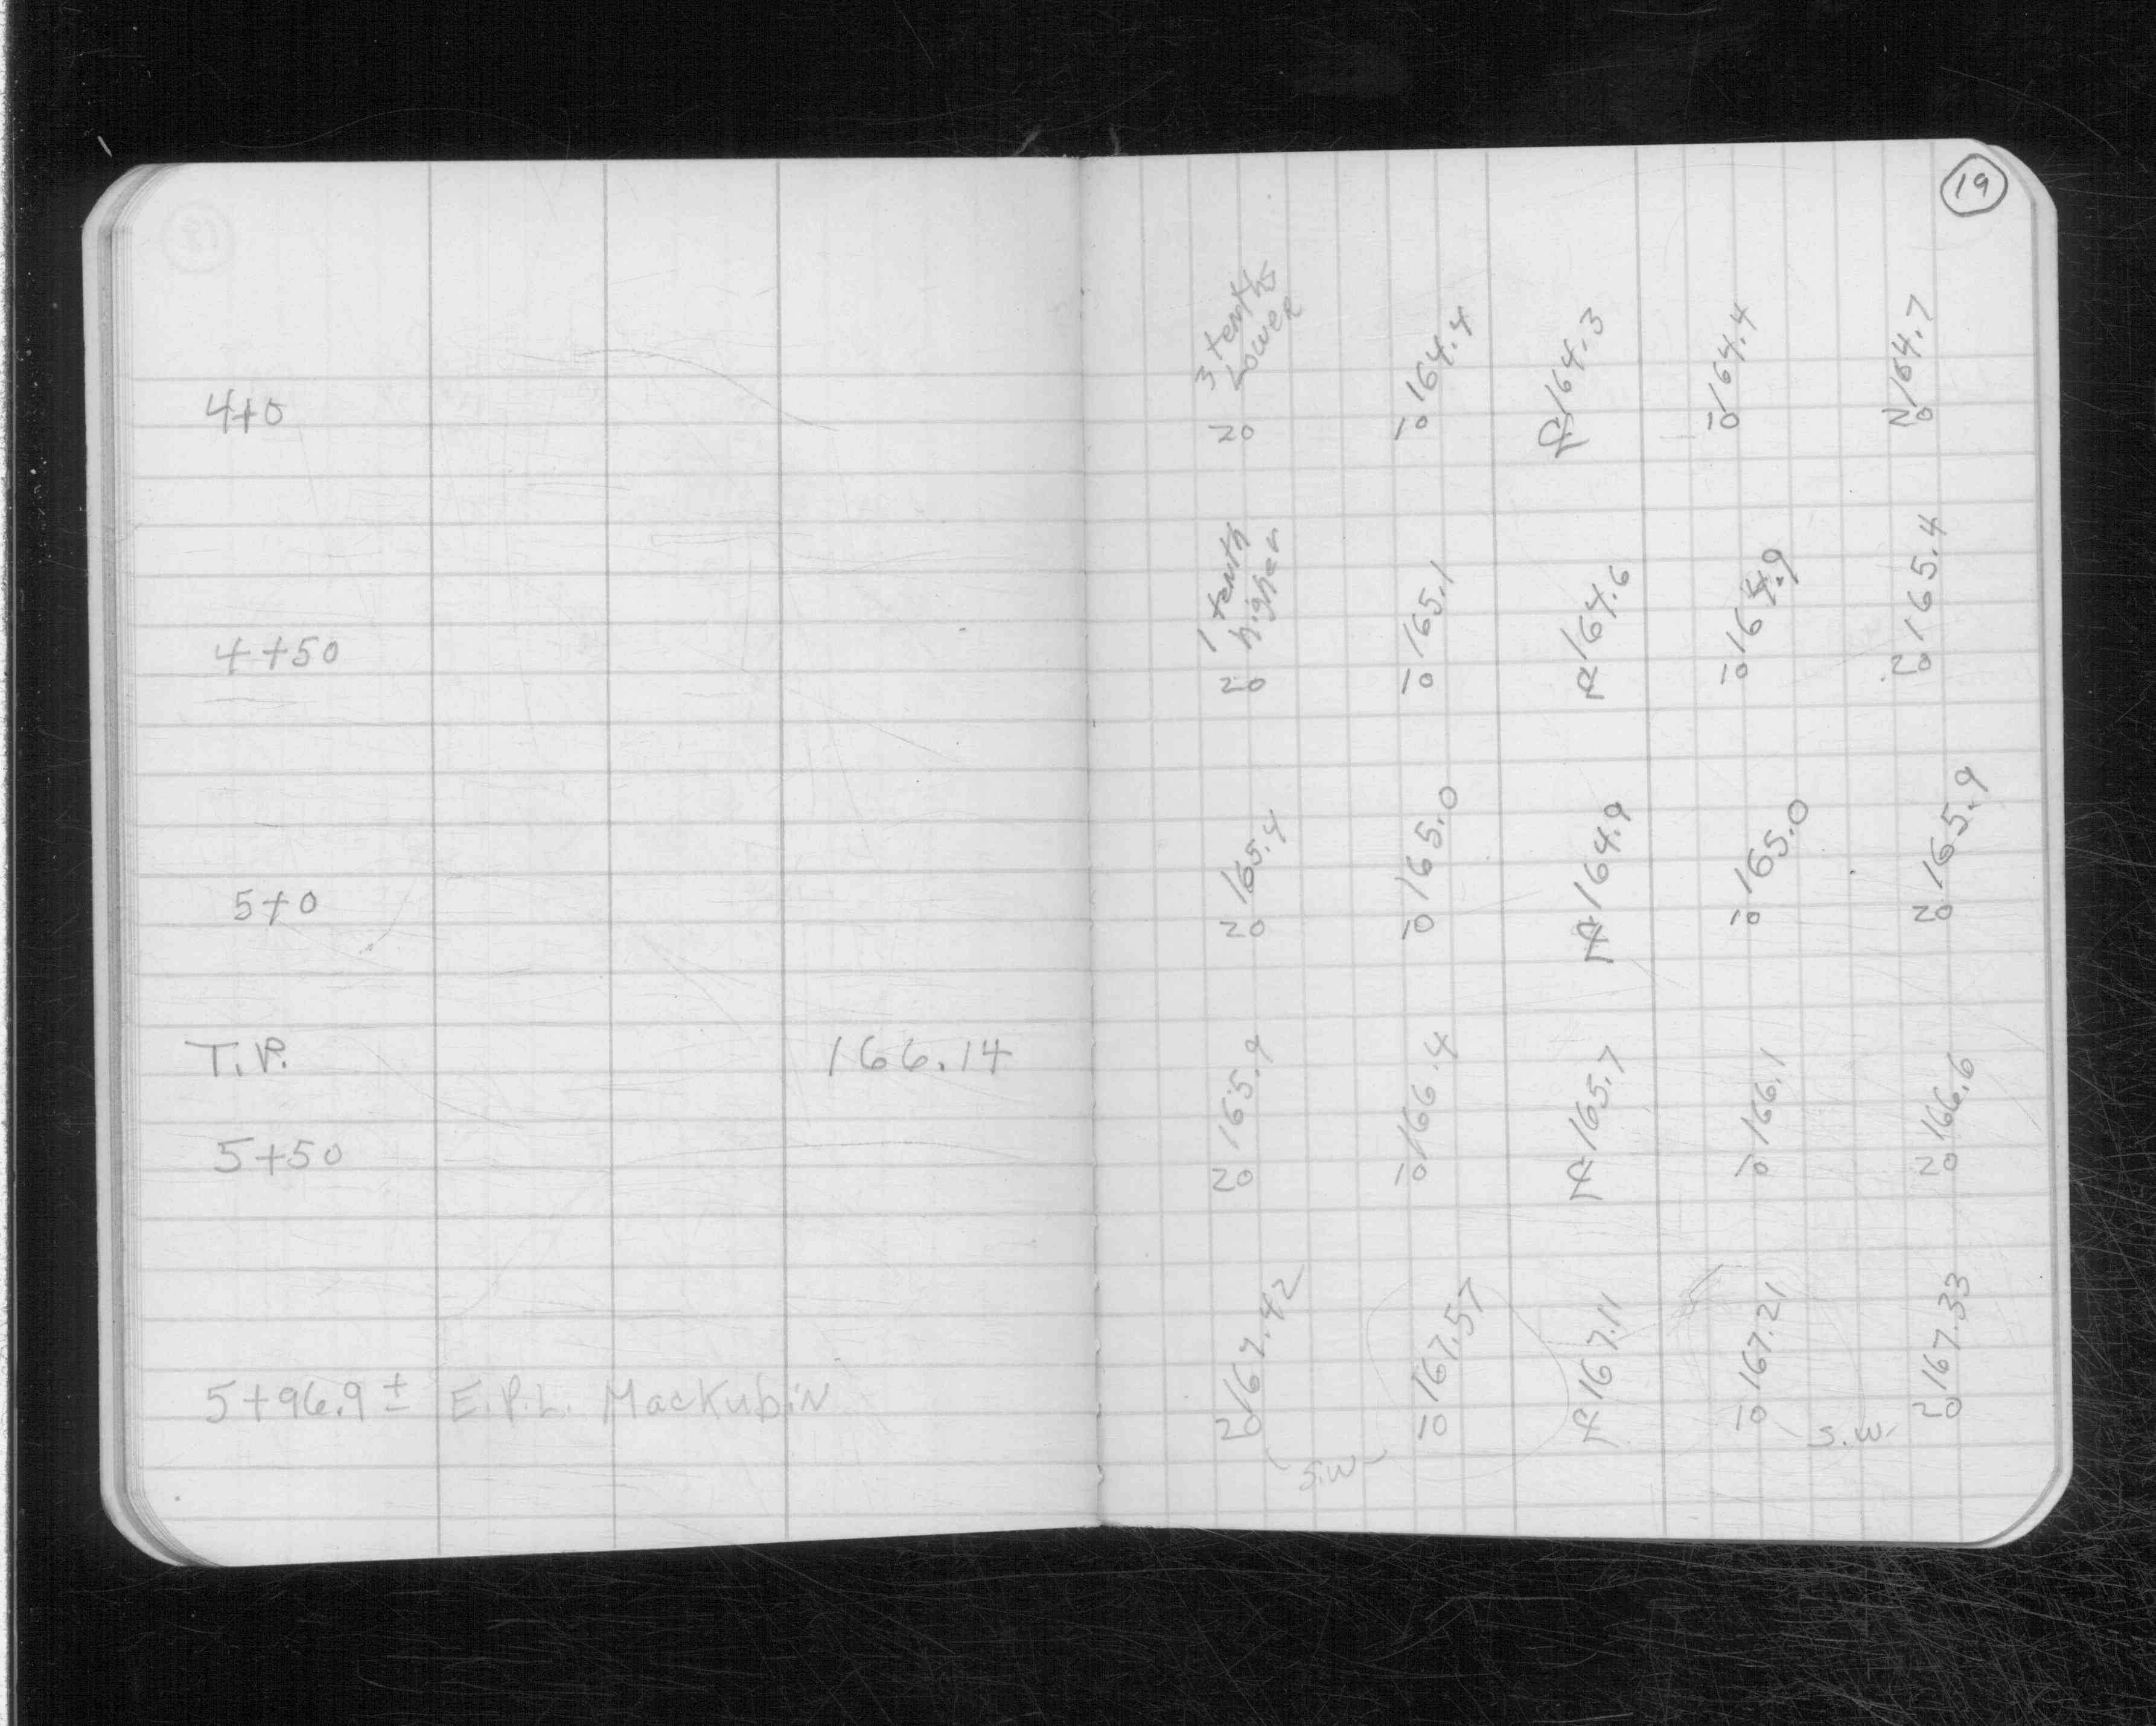 19
4+0
20 3 tenths Lower
10 164.4
℄ 164.3
10 164.4
20 164.7
4+50
20 1 tenth higher
10 165.1
℄ 164.6
10 164.9
20 165.4
5+0
20 165.4
10 165.0
℄ 164.9
10 165.0
20 165.9
T.P. 166.14
5+50
20 165.9
10 166.4
℄ 165.7
10 166.1
20 166.6
5+96.9 ± E.P.L. MacKubin
20 167.42
10 167.57
℄ 167.11
10 167.21
20 167.33
S.W.
S.W.